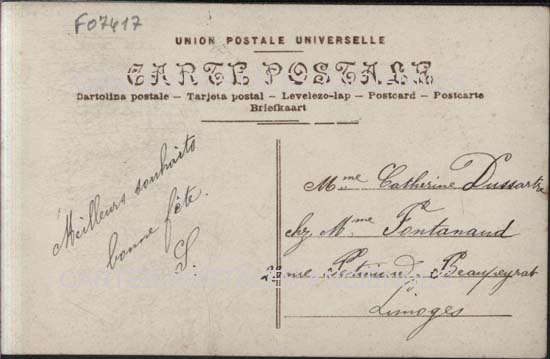 F07417
UNION POSTALE UNIVERSELLE
CARTE POSTALE
Dartolina postale – Tarjeta postal – Levelezo-lap – Postcard – Postcarte
Briefkaart
Meilleurs souhaits
bonne fête.
S.
Mme Catherine Dussartre
chez Mme Fontanaud
rue Beaupeyrat
Limoges